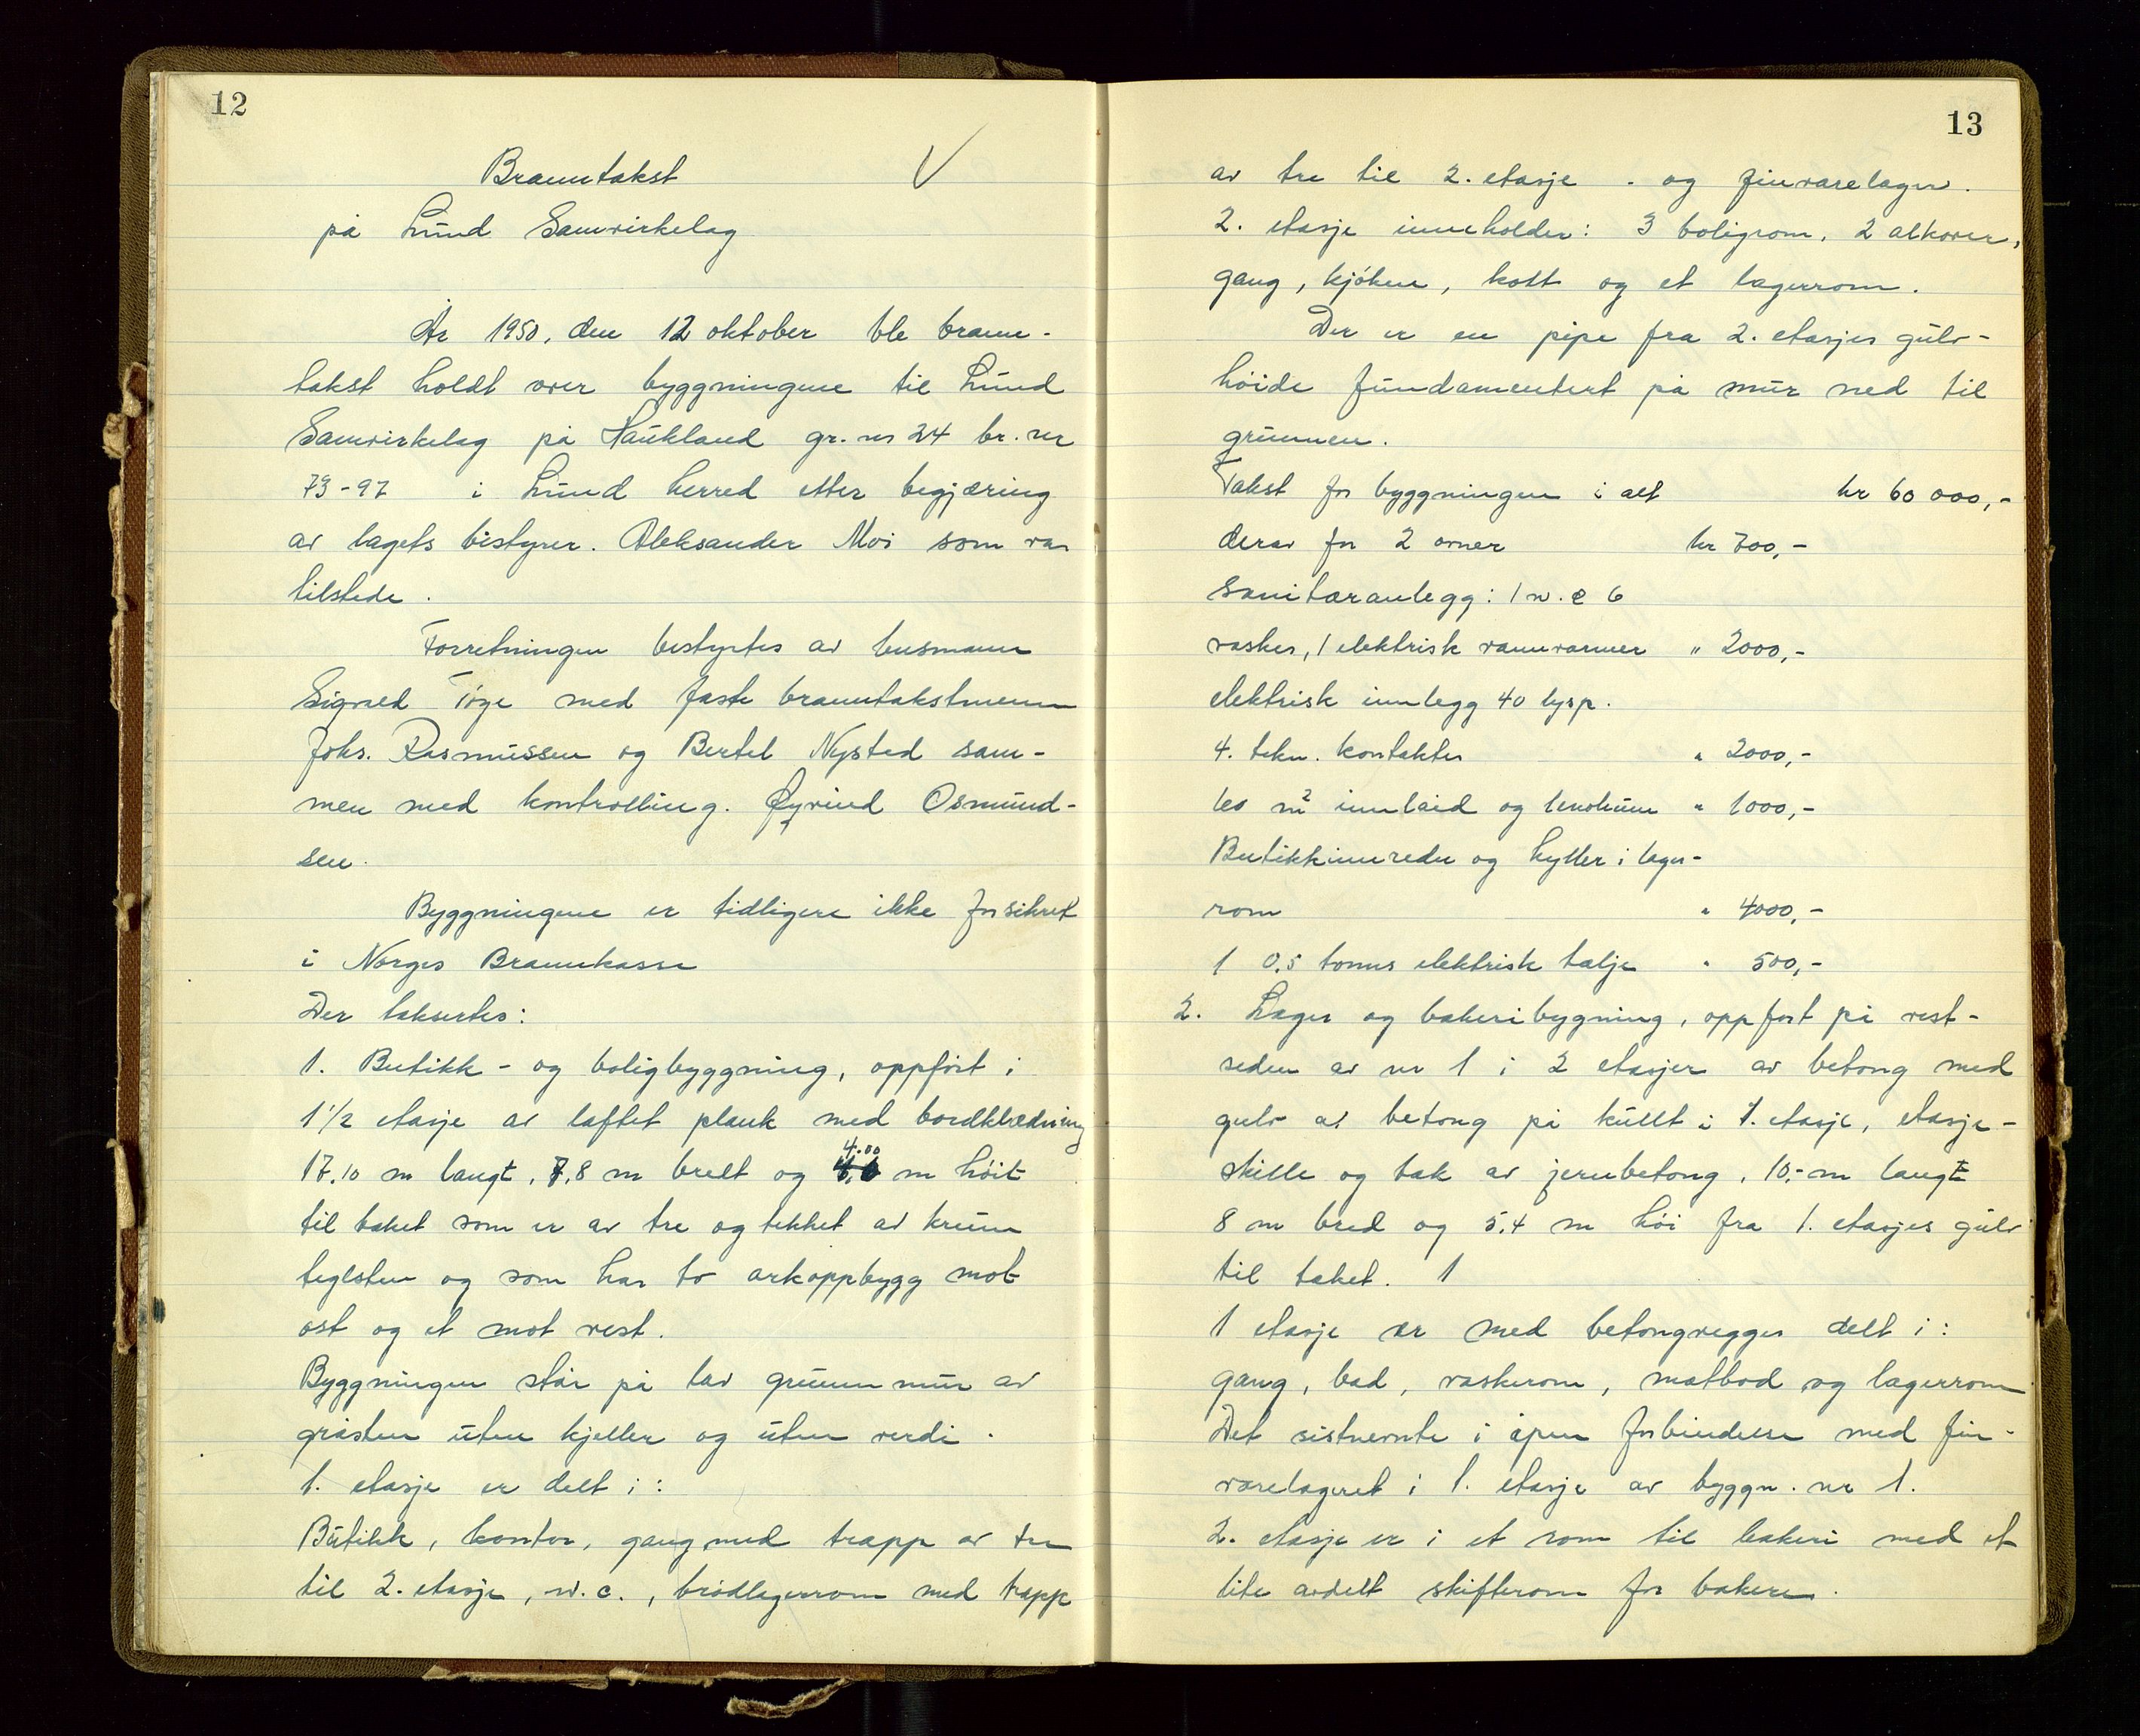 12
Branntakst
på Lund Samvirkelag
År 1950, den 12 oktober ble brann-
takst holdt over byggningene til Lund
Samvirkelag på Haukland gr. nr 24 br. nr
73-97 i Lund herred etter begjæring
av lagets bistyrer. Aleksander Moi som var
tilstede.
Forretningen bestyrtes av lensmann
Sigvald med faste branntakstmenn
Johs. Rasmussen og Bertel Nysted sam-
men med kontrolling. Øyvind Osmund-
sen.
Byggningene er tidligere ikke forsikret
i Norges Brannkasse
Der taksertes:
1. Butikk- og boligbyggning, oppført i
1 1/2 etasje av laftet plank med bordkledning
17.10 m langt, 7,8 m bredt og 4.00 m høit
til taket som er av tre og tekket av krum
teglsten og som har to arkoppbygg mot
øst og et mot vest.
Byggningen står på lav grunnmur av
gråsten uten kjeller og uten verdi.
1. etasje er delt i:
Butikk, kontor, gang med trapp av tre
til 2. etasje, w.c., brødlagerrom med trapp
13
av tre til 2. etasje - og finvarelager.
2. etasje inneholder: 3 boligrom, 2 alkover,
gang, kjøken, kott og et lagerrom.
Der er en pipe fra 2. etasjes gulv-
høide fundamentert på mur ned til
grunnen.
Takst for byggningen i alt kr 60 000,-
derav for 2 ovner kr 700,-
Sanitæranlegg: 1 w.c 6
vasker, 1 elektrisk vannvarmer " 2000,-
elektrisk innlegg 40 lysp.
4. tekn. kontakter " 2000,-
160 m2 innlaid og lenoleum " 1000,-
Butikkinnreder og hyller i lager-
rom " 4000,-
1 0.5 tonns elektrisk talje " 500,-
2. Lager og bakeribygning, oppført på vest-
siden av nr 1 i 2 etasjer av betong med
gulv av betong på kullt i 1. etasje, etasje-
skille og tak av jernbetong, 10,- m langt
8 m bred og 5.4 m høi fra 1. etasjes gulv
til taket. 1
1 etasje er med betongvegger delt i:
gang, bad, vaskerom, matbod og lagerrom
Det sistnevnte i åpen forbindelse med fin-
varelageret i 1. etasje av byggn. nr 1.
2. etasje er i et rom til bakeri med et
lite avdelt skifterom for bakere.